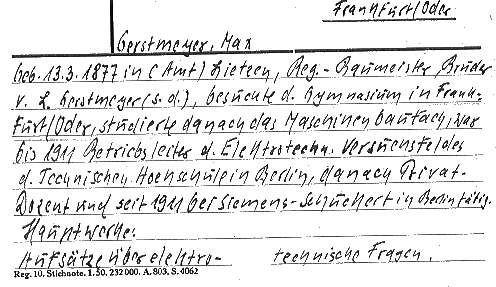 Frankfurt/Oder
Gerstmeyer, Max
geb. 13.3.1877 in (Amt) Lietzen, Reg.-Baumeister, Bruder
v. L. Gerstmeyer (s. d.), besuchte d. Gymnasium in Frank-
furt/Oder, studierte danach das Maschinenbaufach, war
bis 1911 Betriebsleiter d. Elektrotechn. Versuchsfeldes
d. Technischen Hochschule in Berlin, danach Privat-
Dozent und seit 1911 bei Siemens-Schuckert in Berlin tätig.
Hauptwerke:
Aufsätze über elektro- technische Fragen.
Reg. 10. Stichnote. 1. 50. 232000. A. 803. S. 4062